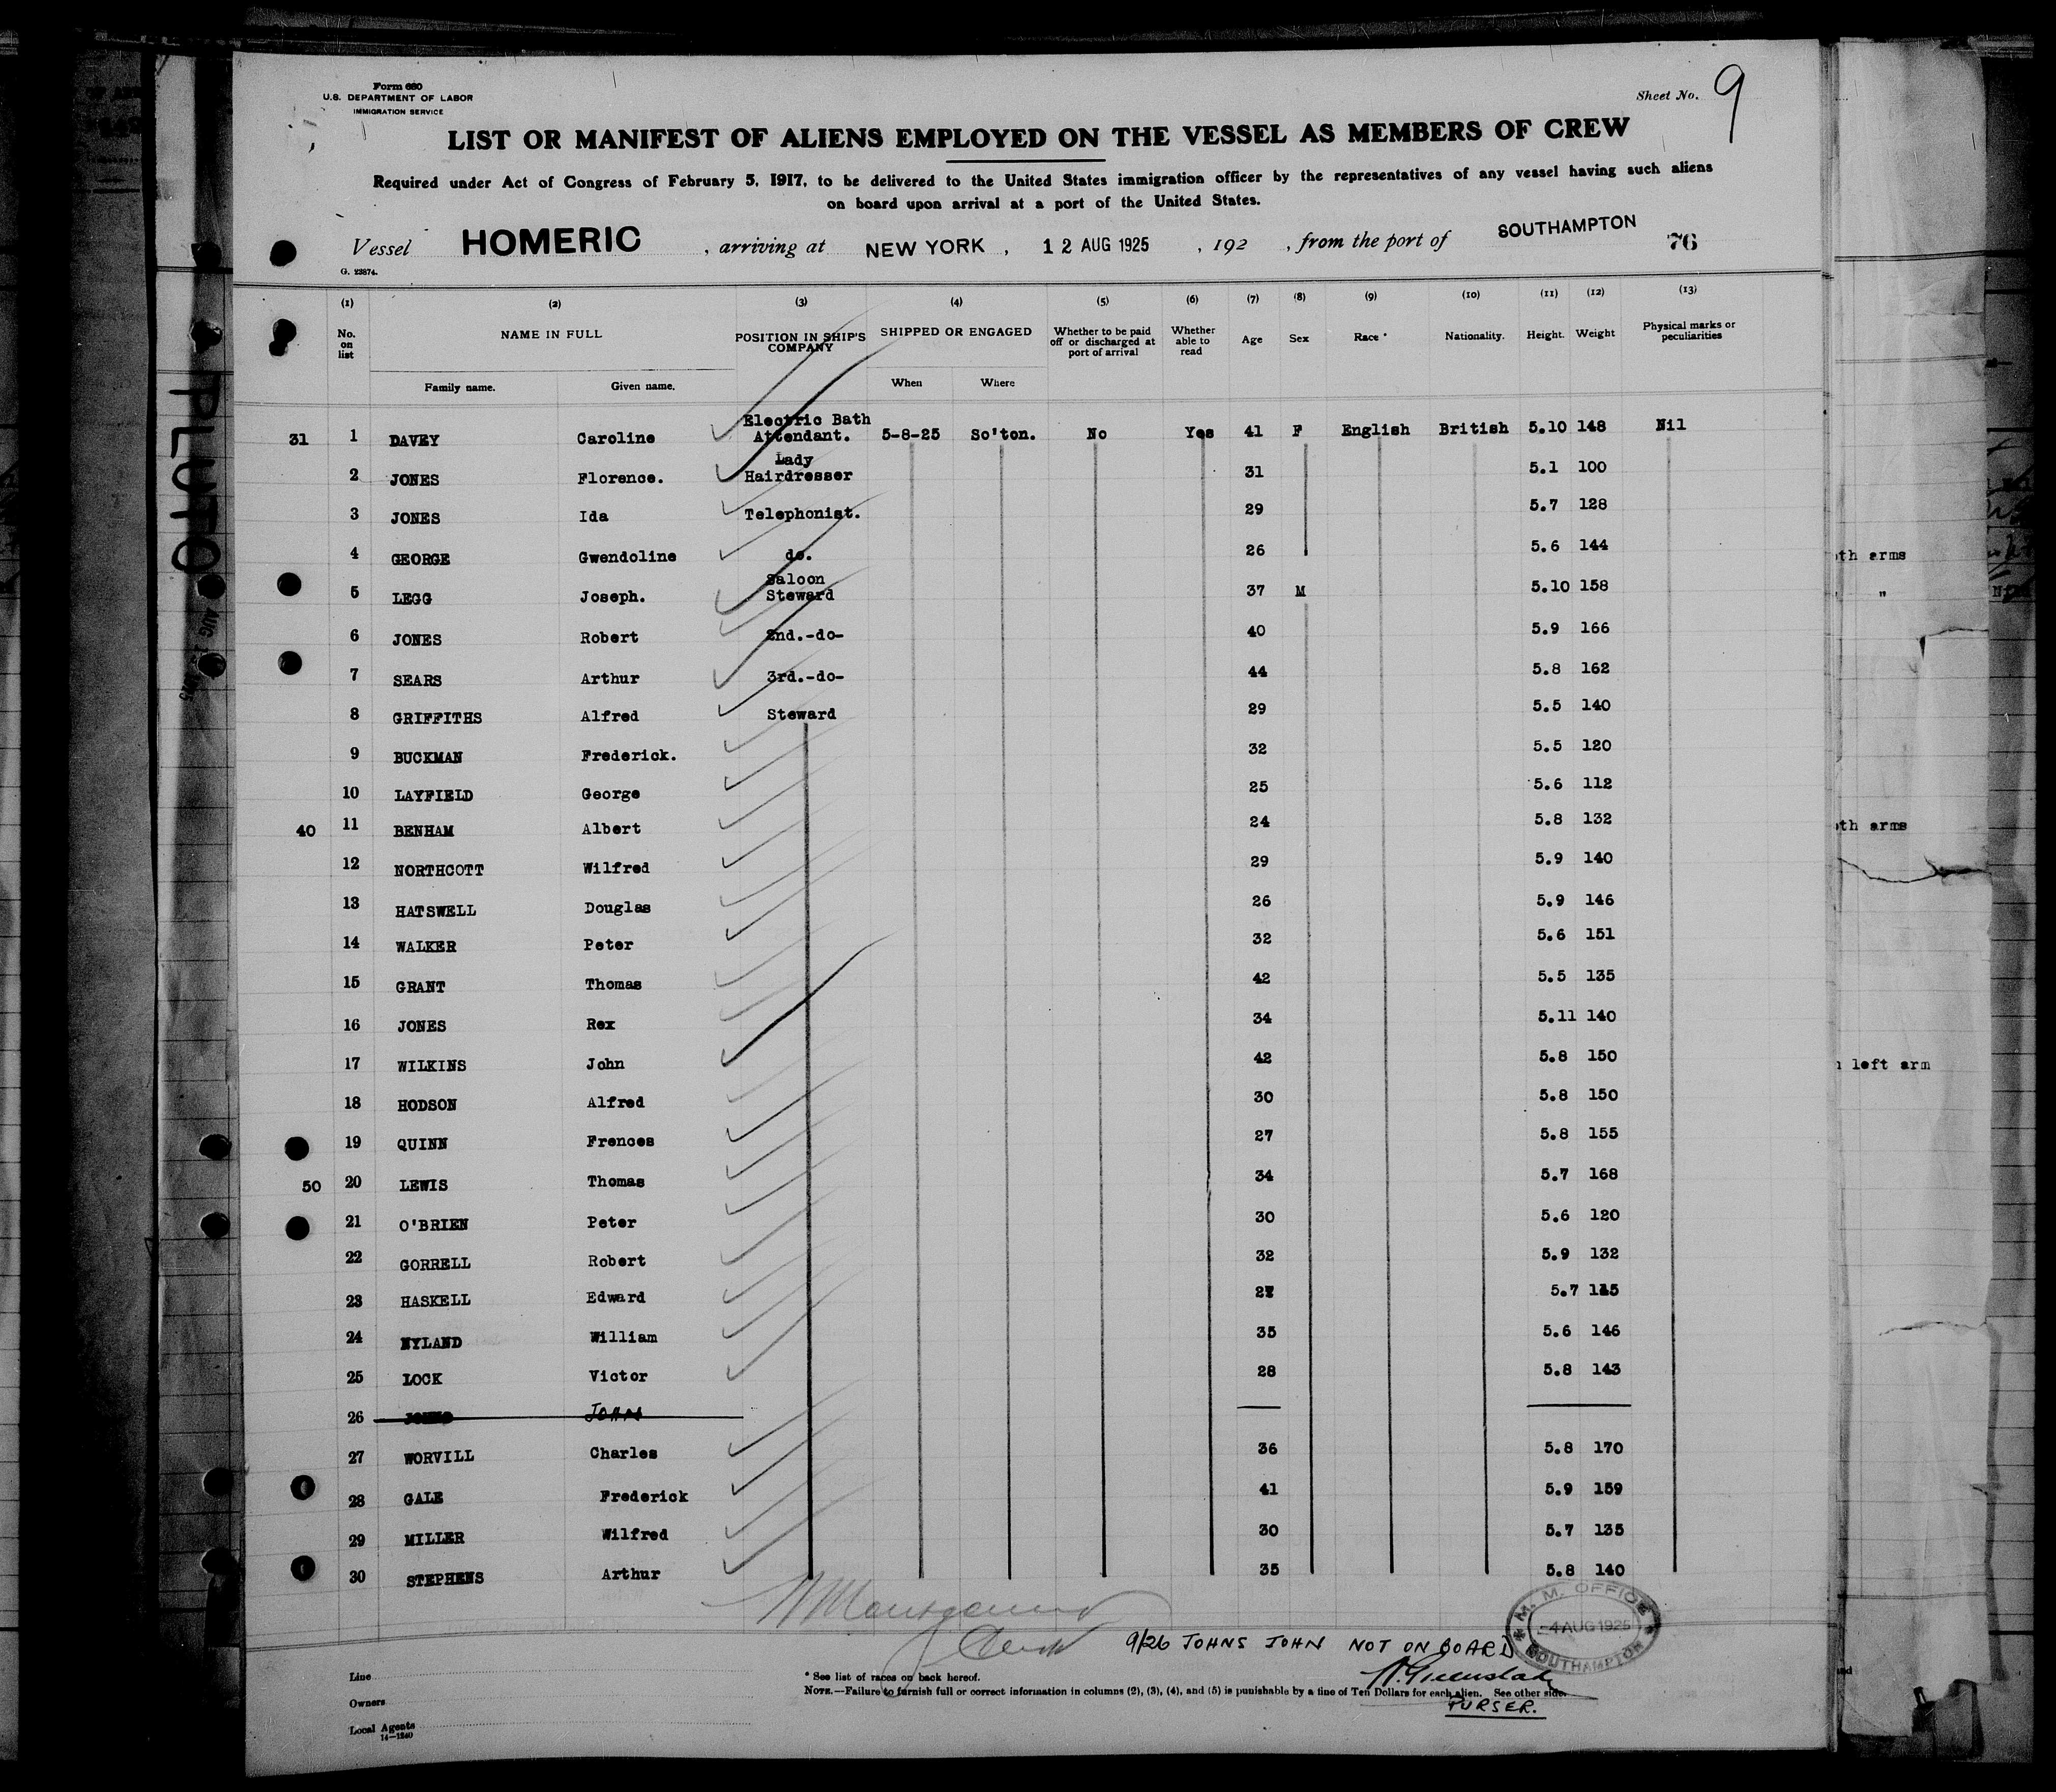 Form 680
U.S. DEPARTMENT OF LABOR
IMMIGRATION SERVICE
Sheet No. 9
LIST OR MANIFEST OF ALIENS EMPLOYED ON THE VESSEL AS MEMBERS OF CREW
Required under Act of Congress of February 5, 1917, to be delivered to the United States immigration officer by the representatives of any vessel having such aliens
on board upon arrival at a port of the United States.
Vessel HOMERIC , arriving at NEW YORK , 12 AUG 1925 , 192 , from the port of SOUTHAMPTON 76
G. 23874.
(1) (2) (3) (4) (5) (6) (7) (8) (9) (10) (11) (12) (13)
No. on list NAME IN FULL POSITION IN SHIP'S COMPANY SHIPPED OR ENGAGED Whether to be paid off or discharged at port of arrival Whether able to read Age Sex Race * Nationality. Height. Weight Physical marks or peculiarities
Family name. Given name. When Where
31 1 DAVEY Caroline Electric Bath Attendant. 5-8-25 So'ton. No Yes 41 F English British 5.10 148 Nil
2 JONES Florence. Lady Hairdresser 31 5.1 100
3 JONES Ida Telephonist. 29 5.7 128
4 GEORGE Gwendoline do. 26 5.6 144
5 LEGG Joseph. Saloon Steward 37 M 5.10 158
6 JONES Robert 2nd.-do- 40 5.9 166
7 SEARS Arthur 3rd.-do- 44 5.8 162
8 GRIFFITHS Alfred Steward 29 5.5 140
9 BUCKMAN Frederick. 32 5.5 120
10 LAYFIELD George 25 5.6 112
40 11 BENHAM Albert 24 5.8 132
12 NORTHCOTT Wilfred 29 5.9 140
13 HATSWELL Douglas 26 5.9 146
14 WALKER Peter 32 5.6 151
15 GRANT Thomas 42 5.5 135
16 JONES Rex 34 5.11 140
17 WILKINS John 42 5.8 150
18 HODSON Alfred 30 5.8 150
19 QUINN Frences 27 5.8 155
50 20 LEWIS Thomas 34 5.7 168
21 O'BRIEN Peter 30 5.6 120
22 GORRELL Robert 32 5.9 132
23 HASKELL Edward 5.7
24 NYLAND William 35 5.6 146
25 LOCK Victor 28 5.8 143
26 JOHNS JOHN
27 WORVILL Charles 36 5.8 170
28 GALE Frederick 41 5.9 159
29 MILLER Wilfred 30 5.7 135
30 STEPHENS Arthur 35 5.8 140
M. M. OFFICE
-4 AUG 1925
SOUTHAMPTON
9/26 JOHNS JOHN NOT ON BOARD
PURSER.
Line
Owners
Local Agents
14-1240
* See list of races on back hereof.
NOTE.—Failure to furnish full or correct information in columns (2), (3), (4), and (5) is punishable by a fine of Ten Dollars for each alien. See other side.
PLUTO
arms
"
arms
left arm